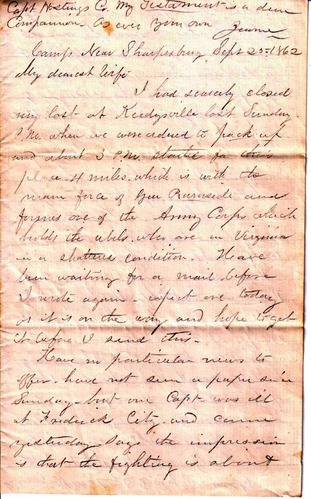 Capt Hastings Co. My Testament is a dear
Companion. As ever Your own
Jerome
Camp Near Sharpsburg Sept 25 1862
My dearest Wife
I had scarcely closed
my last at Keedysville last Sunday
P.M. when we were ordered to pack up
and about 3 P.M. started for this
place 4 miles. which is with the
main force of Gen Burnside and
forms one of the Army Corps which
holds the rebels who are in Virginia
in a shattered condition. Have
been waiting for a mail before
I wrote again expect one today
as it is on the way and hope to get
it before I send this.
Have no particular news to
offer. have not seen a paper since
Sunday. but our Capt. was ill
at Frederick City and came
yesterday Says the impression
is that the fighting is about